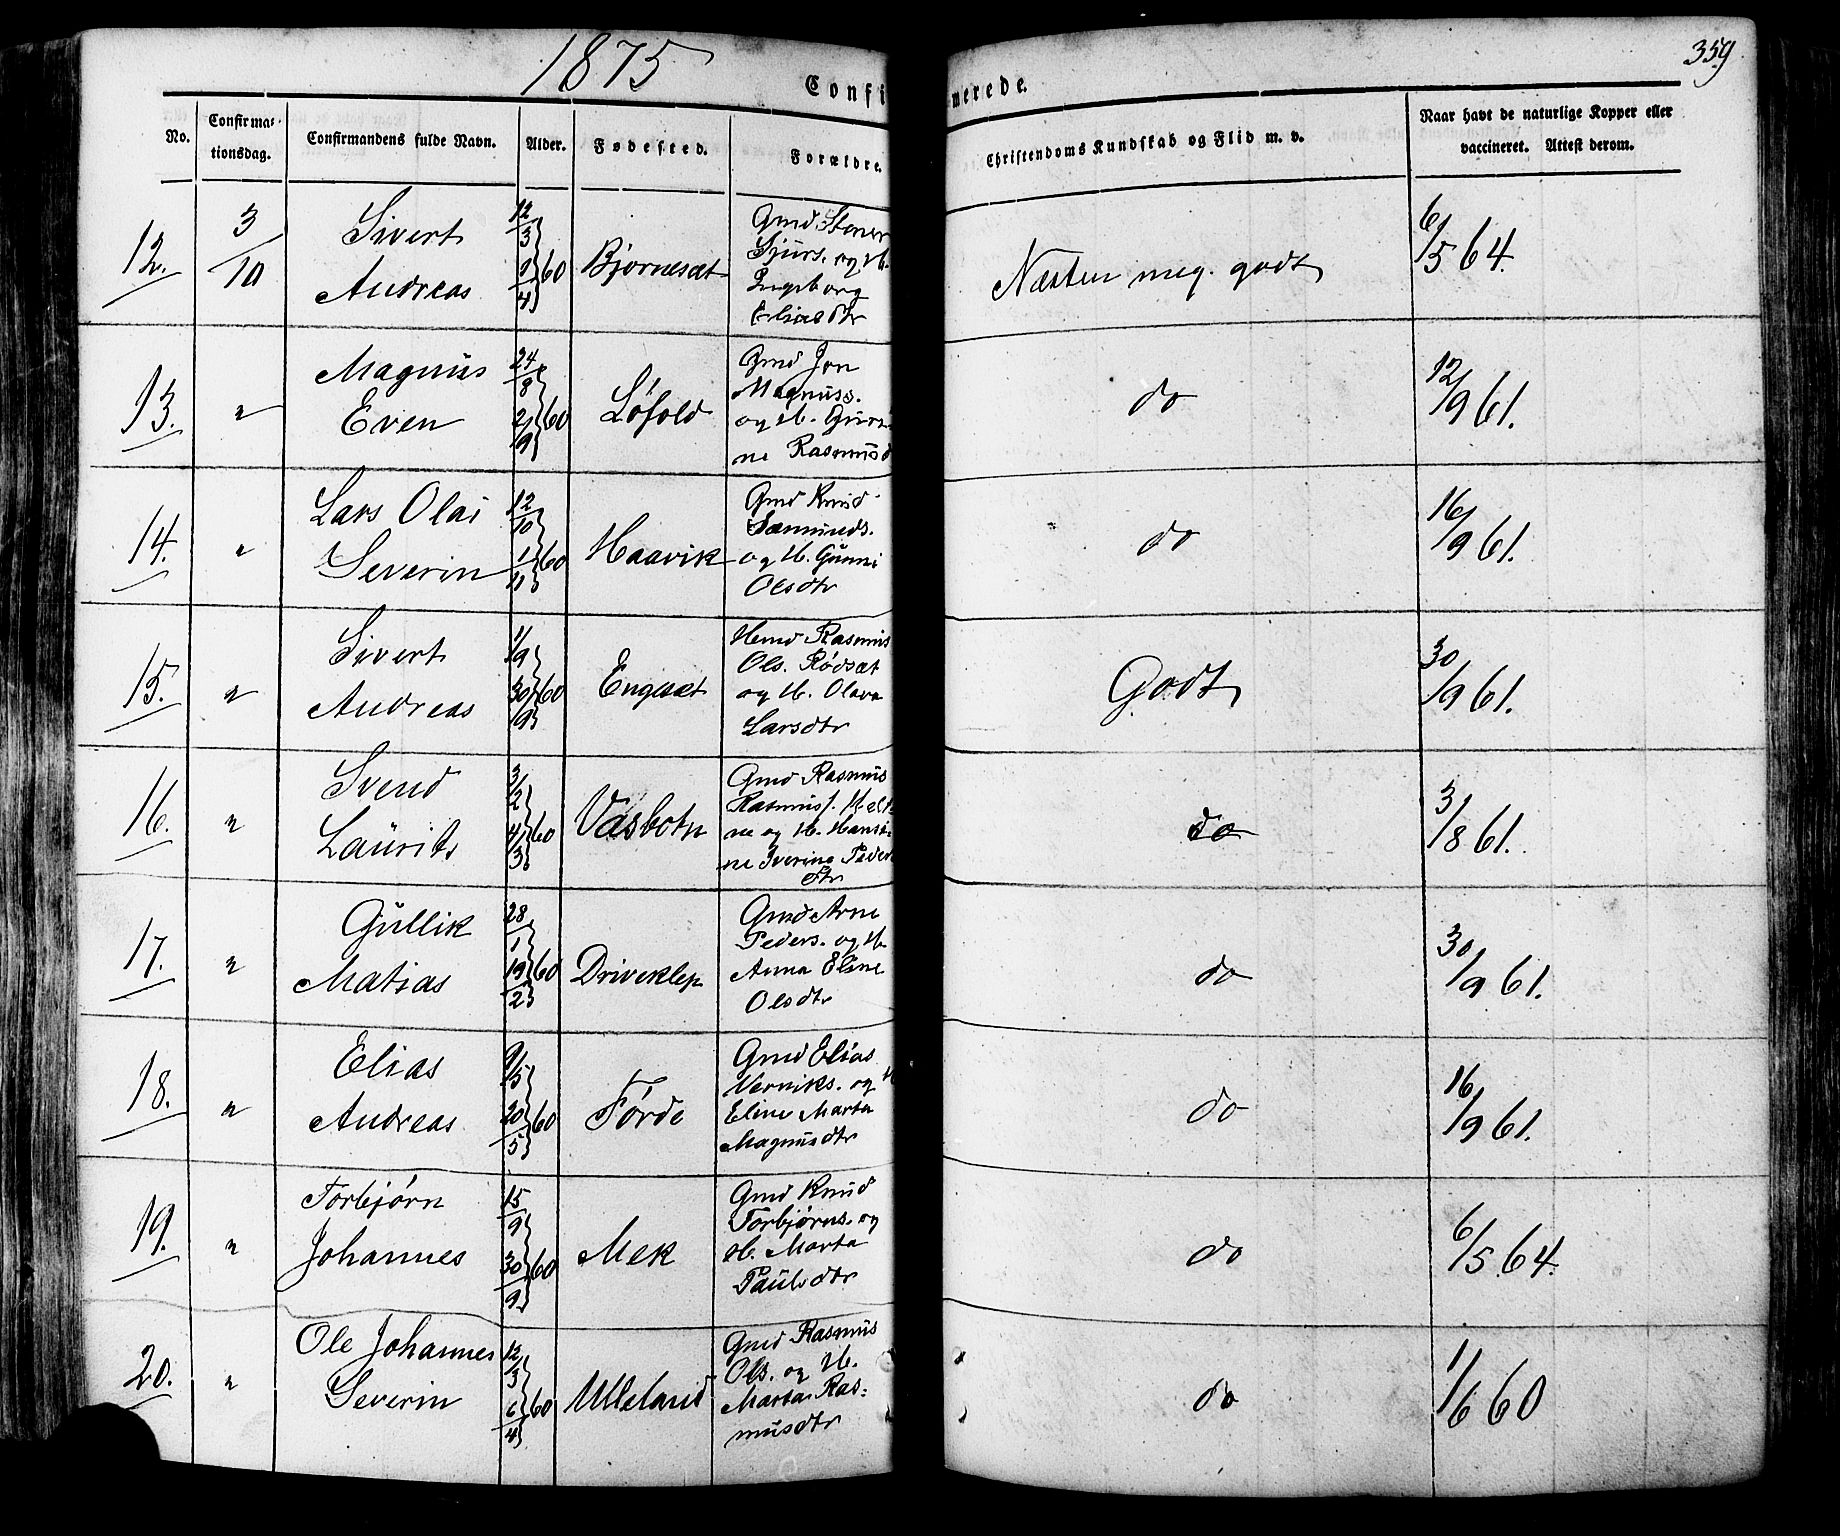 1875
359
Confi
merede.
No.
Confirma-
tionsdag.
Confirmandens fulde Navn.
Alder.
Fødested.
Forældre.
Christendoms Kundskab og Flid m. v.
Naar havt de naturlige Kopper eller
vaccineret. Attest derom.
12.
3/10
Sivert
Andreas
12/3
1/4 60
Bjørnesæt
Gmd Stener
Sjurs. og H.
Ingeborg
Eliasdtr
Næsten meg. godt
6/5 64.
13.
"
Magnus
Even
24/8
2/9 60
Løfold
Gmd Jon
Magnuss.
og H. Guri-
ne Rasmusd
do
12/9 61.
14.
"
Lars Olai
Severin
12/10
1/11 60
Haavik
Gmd Knud
Sæmunds.
og H. Gunni
Olsdtr
do
16/9 61.
15.
"
Sivert
Andreas
1/9
30/9 60
Engeset
Hmd Rasmus
Ols. Rødsæt
og H. Olava
Larsdtr
Godt
30/9 61.
16.
"
Svend
Laurits
3/2
4/3 60
Vasbotn
Gmd Rasmus
Rasmuss.
ne og H. Hansi-
ne Iverine Peders
dtr
do
3/8 61.
17.
"
Gullik
Matias
28/1
19/2 60
Driveklep
Gmd Arne
Peders. og H.
Anna Eline
Olsdtr
do
30/9 61.
18.
"
Elias
Andreas
9/5
20/5 60
Førde
Gmd Elias
Verniks. og H
Eline Marta
Magnusdtr
do
16/9 61.
19.
"
Torbjørn
Johannes
15/9
30/9 60
Mek
Gmd Knud
Torbjørns. og
H. Marta
Paulsdtr
do
6/5 64.
20.
"
Ole Johannes
Severin
12/3
6/4 60
Ulleland
Gmd Rasmus
Ols. og H.
Marta Ras-
musdtr
do
1/6 60